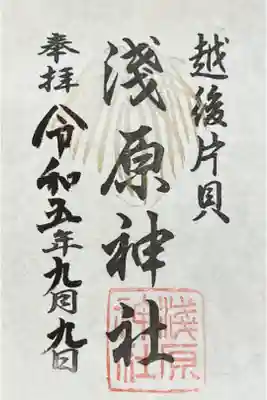 越後片貝
淺原神社
淺原
神社
奉拝
令和五年九月九日